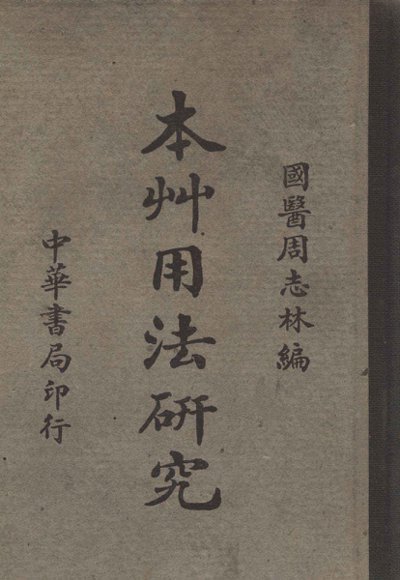 國醫周志林編
本艸用法研究
中華書局印行